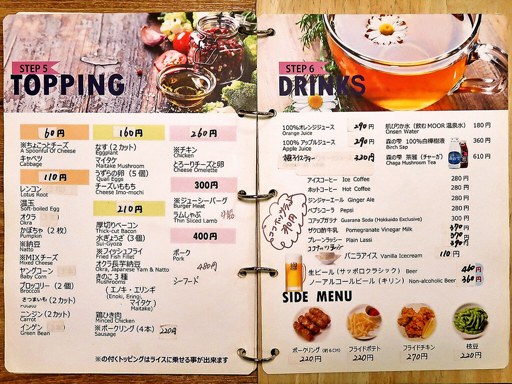 STEP 5
TOPPING
60円
※ちょこっとチーズ
A Spoonful Of Cheese
キャベツ
Cabbage
110円
レンコン
Lotus Root
温玉
Soft-boiled Egg
オクラ
Okra
かぼちゃ (2ヶ)
Pumpkin
※納豆
Natto
※MIXチーズ
Mixed Cheese
ヤングコーン
Baby Corn
ブロッコリー (2ヶ)
Broccoli
さつまいも (2カット)
ニンジン (2カット)
Carrot
インゲン
Green Bean
160円
なす (2カット)
Eggplant
マイタケ
Maitake Mushroom
うずらの卵 (5個)
Quail Eggs
チーズいももち
Cheese Imo-mochi
210円
厚切りベーコン
Thick-cut Bacon
水ぎょうざ (3個)
Sui-Gyoza
※フィッシュフライ
Fried Fish Fillet
オクラ長芋納豆
Okra, Japanese Yam & Natto
きのこ3種
Mushrooms
(エノキ・エリンギ
(Enoki, Eringi,
マイタケ)
Maitake)
鶏ひき肉
Minced Chicken
※ポークウリング (4本) 220円
260円
※チキン
Chicken
とろーりチーズと卵
Cheese Omelette
300円
※ジューシーバーグ
Burger Meat
ラムしゃぶ
Thin Sliced Lamb
400円
ポーク
Pork
480円
シーフード
※の付くトッピングはライスに乗せる事が出来ます
STEP 6
DRINKS
100%オレンジジュース 290円
Orange Juice
100%アップルジュース 290円
Apple Juice
320円
飲むMOOR温泉水) 180円
Onsen Water
森の雫 100%白樺樹液 360円
Birch Sap
森の雫 茶麗 (チャーガ) 610円
Chaga Mushroom Tea
アイスコーヒー Ice Coffee 280円
ホットコーヒー Hot Coffee 280円
ジンジャエール Ginger Ale 280円
ペプシコーラ Pepsi 280円
コアップガラナ Guarana Soda (Hokkaido Exclusive)
ザクロ酢牛乳 Pomegranate Vinegar Milk
プレーンラッシー Plain Lassi
バニラアイス Vanilla Icecream 110円
生ビール (サッポロクラシック) Beer 460円
ノーアルコールビール (キリン) Non-alcoholic Beer 360円
SIDE MENU
220円
フライドポテト
220円
フライドチキン
270円
枝豆
220円